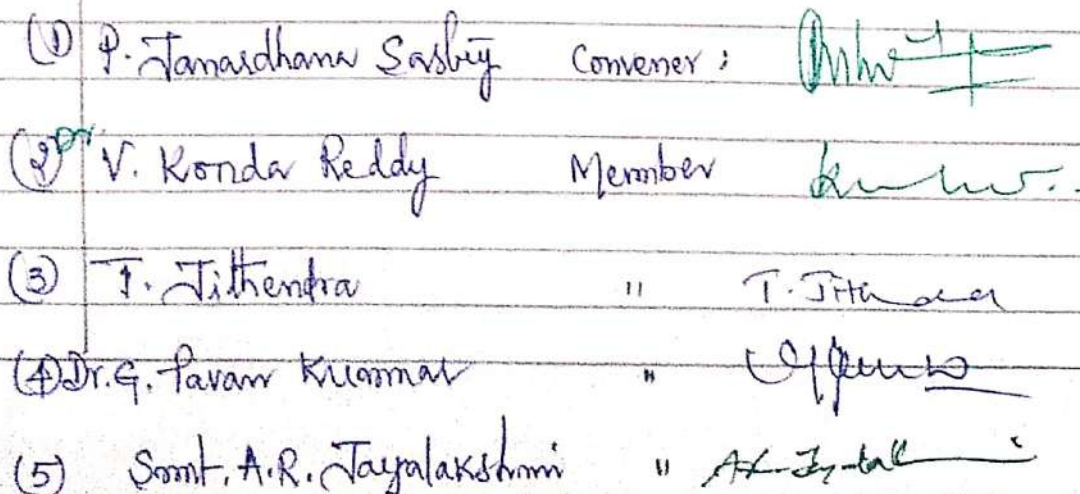 (1) P. Janardhana Sastry Convener :
(2) Dr. V. Konda Reddy Member
(3) T. Jithendra " T. Jithendra
(4) Dr. G. Pavan Kummar "
(5) Smt. A.R. Jayalakshmi "